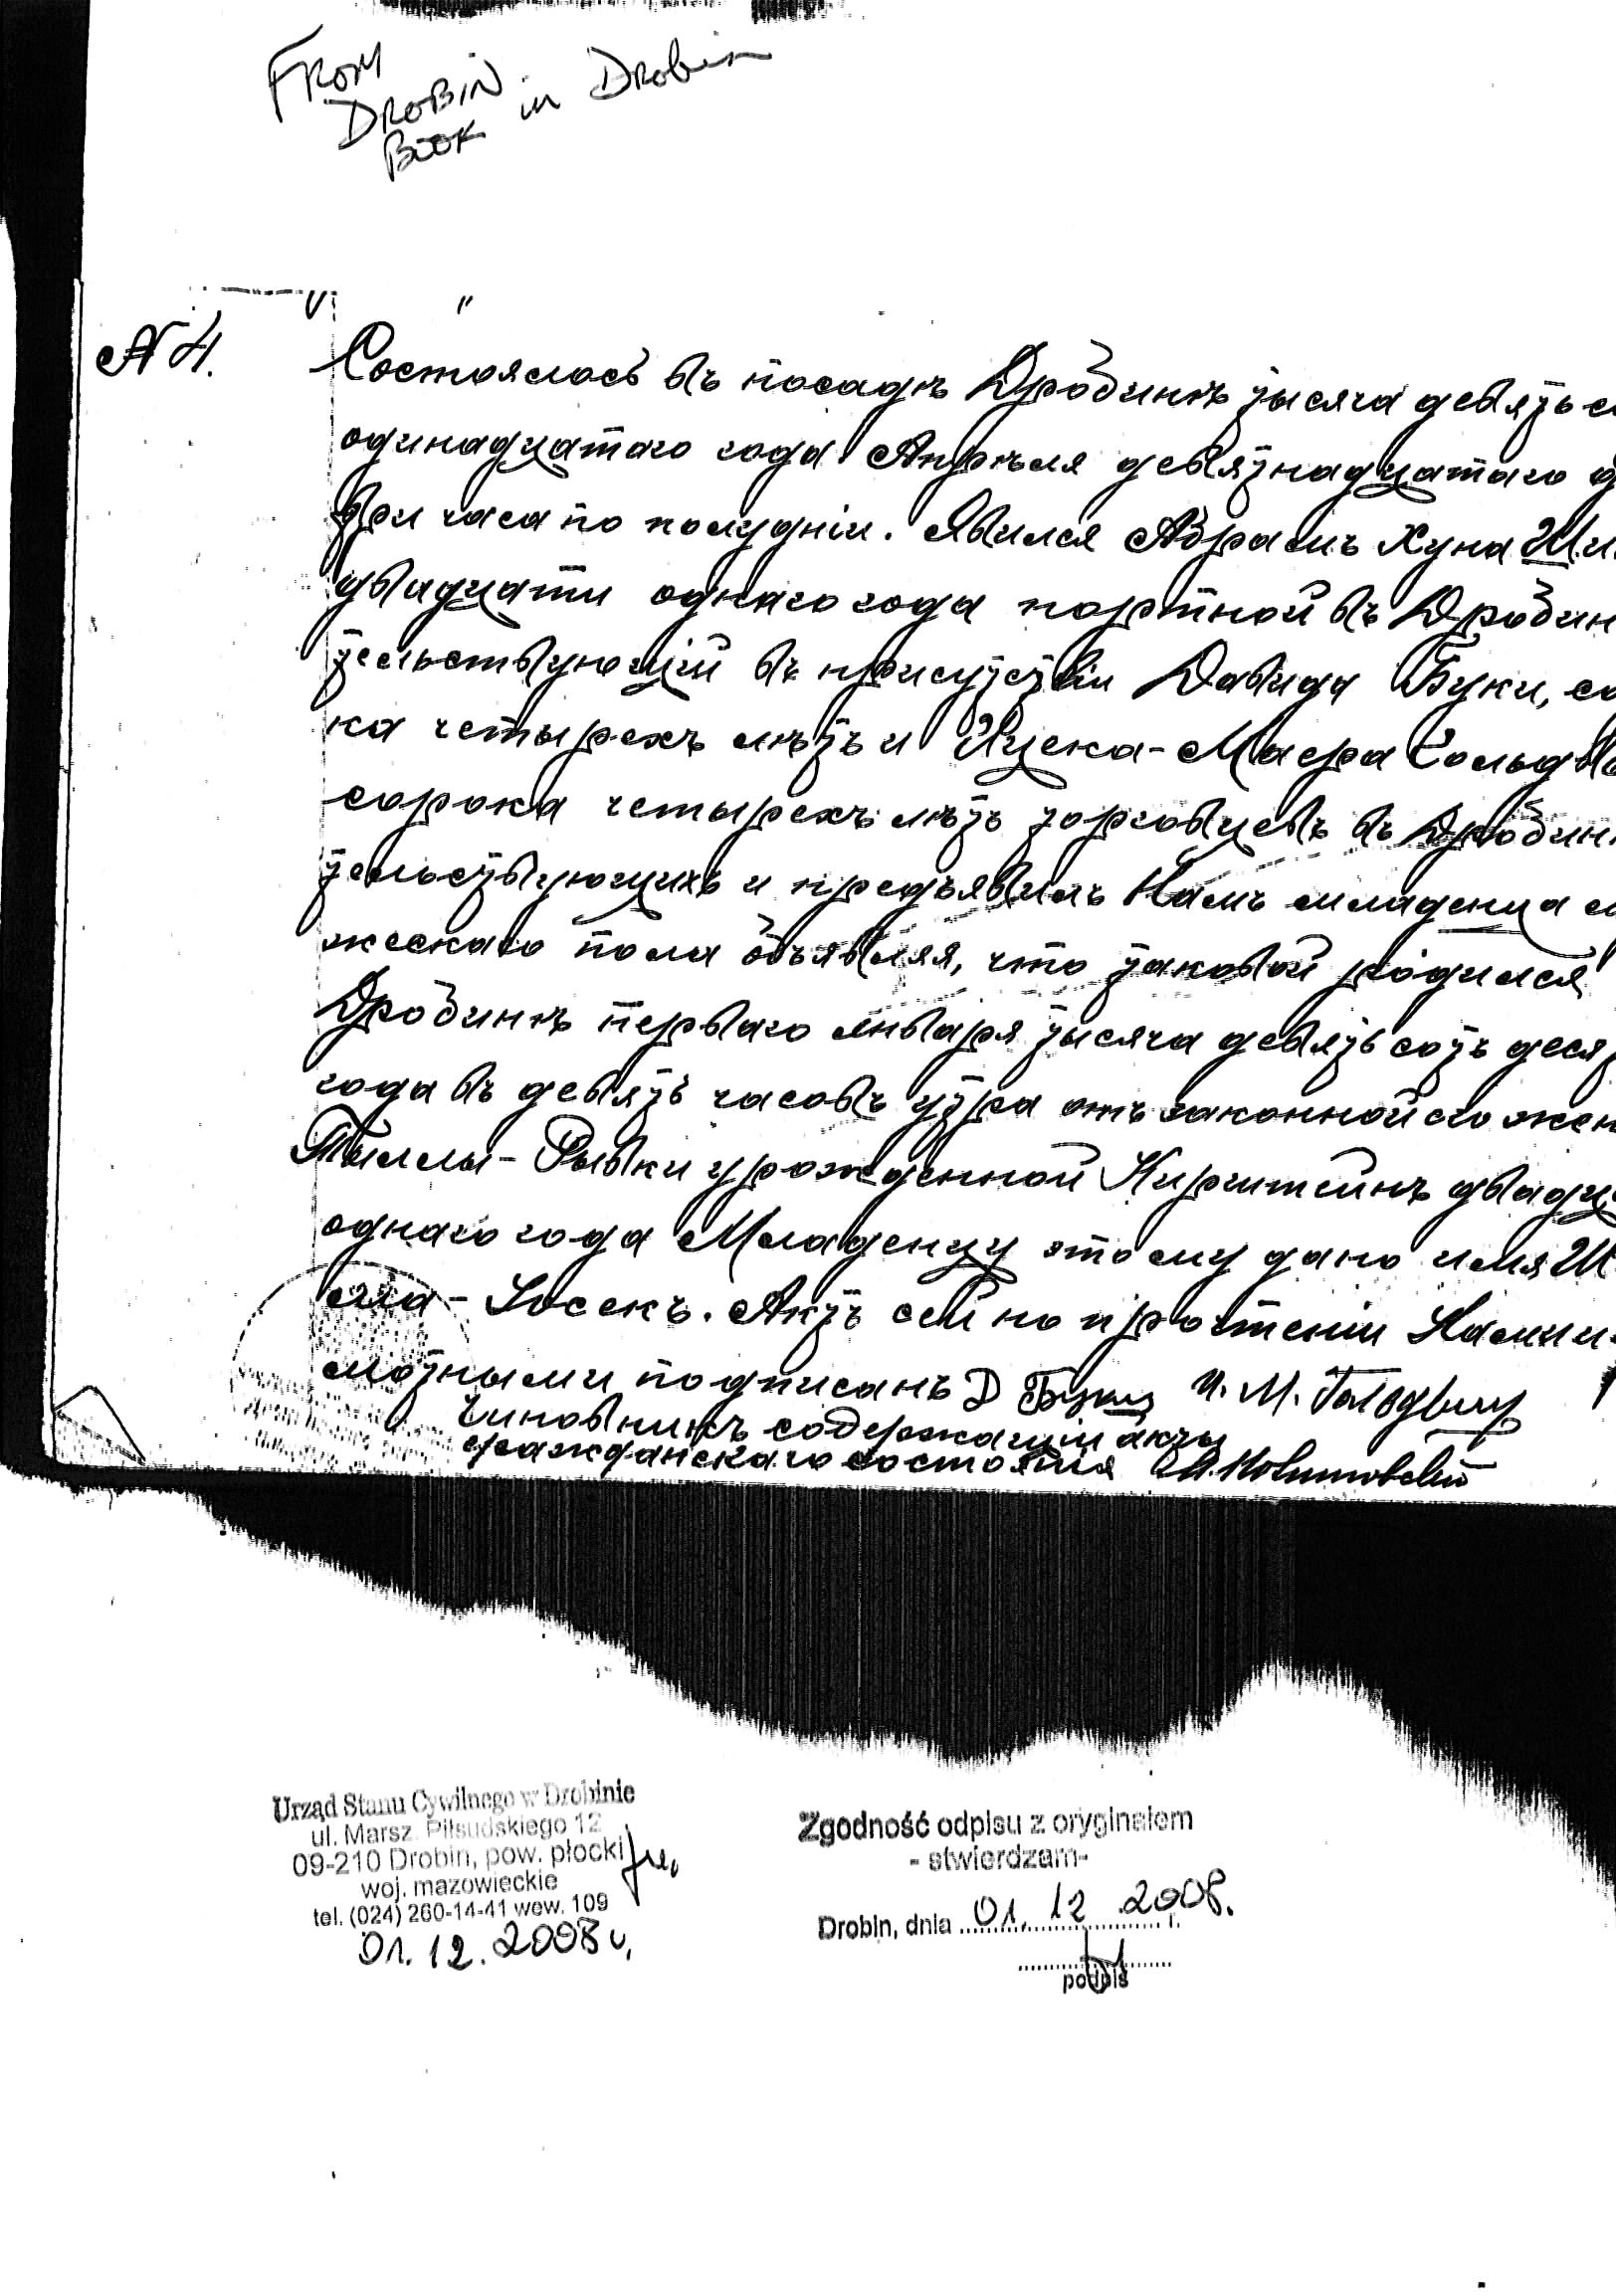 FROM
DROBIN
BOOK in Drobin
№ 4.
Состоялось въ посадѣ Дробинѣ тысяча девятьс
одинадцатаго года Апрѣля девятнадцатаго д
три часа по полудни. Явился Абрамъ Хуна Ши
двадцати одного года портной въ Дробин
тельствующій въ присутствіи Давида Буки, со
ка четырехъ лѣтъ и Ицека-Маера Гольдв
сорока четырехъ лѣтъ торговцевъ въ Дробин
тельствующихъ и предъявилъ Намъ младенца м
жескаго пола объявляя, что таковой родился
Дробинѣ перваго Января тысяча девятьсотъ деся
года въ девять часовъ утра отъ законной его жен
Тыллы-Рывки урожденной Кирштейнъ двадца
одного года Младенцу этому дано имя Ш
Іосекъ. Актъ сей по прочтеніи Нами и
мотными подписанъ Д Буки И. М. Гольдвис
Чиновникъ содержащій акты
гражданскаго состоянія
Urząd Stanu Cywilnego w Drobinie
ul. Marsz. Piłsudskiego 12
09-210 Drobin, pow. płocki
woj. mazowieckie
tel. (024) 260-14-41 wew. 109
01.12.2008 r.
Zgodność odpisu z oryginałem
- stwierdzam-
Drobin, dnia 01.12.2008. r.
podpis